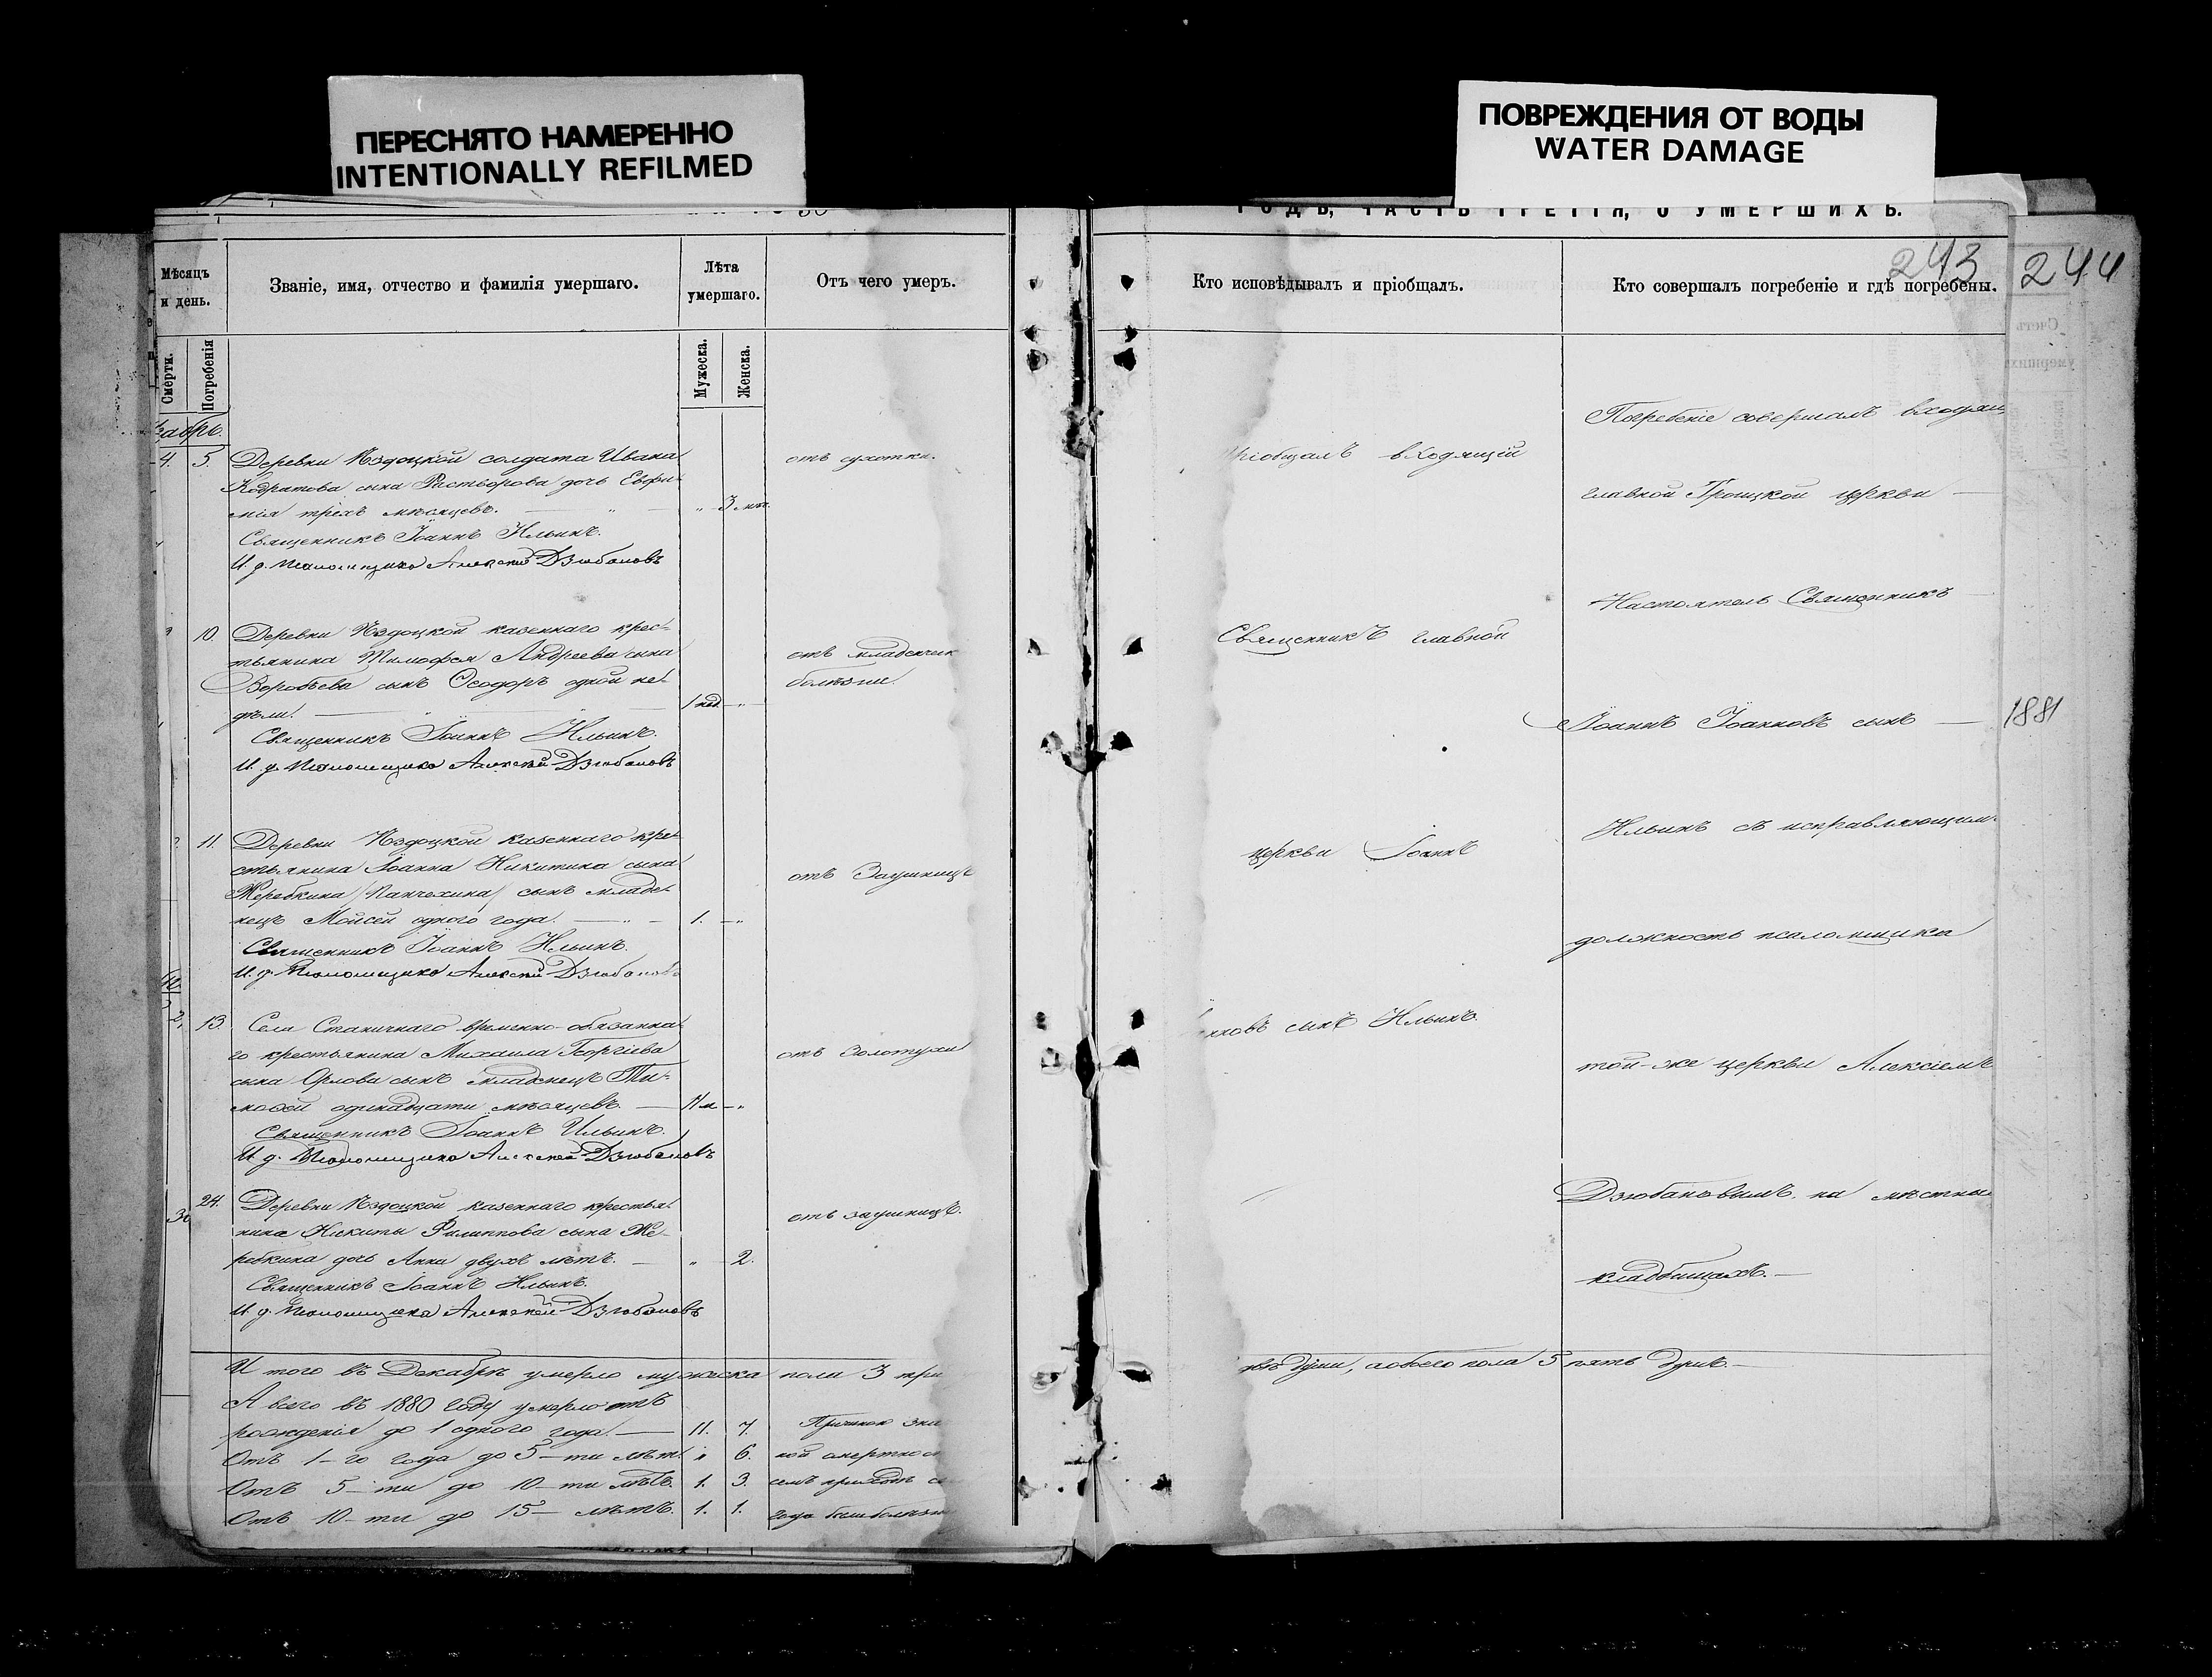 ПЕРЕСНЯТО НАМЕРЕННО
INTENTIONALLY REFILMED
ПОВРЕЖДЕНИЯ ОТ ВОДЫ
WATER DAMAGE
ГОДЪ, ЧАСТЬ ТРЕТІЯ, О УМЕРШИХЪ.
243
244
Мѣсяцъ и день.
Званіе, имя, отчество и фамилія умершаго.
Лѣта умершаго.
Отъ чего умеръ.
Кто исповѣдывалъ и пріобщалъ.
Кто совершалъ погребеніе и гдѣ погребены.
Смерти.
Погребенія
Мужеска.
Женска.
Счетъ
умершихъ
кабрь.
4. 5. Деревни Ѣздоцкой солдата Ивана
Кодратова сына Растворова дочь Евфи-
мія трехъ мѣсяцевъ. — „ — „ 3 мѣс.
отъ сухотки.
Священникъ Іоаннъ Ильинъ.
И. д. Псаломщика Алексѣй Дзюбановъ
10. Деревни Ѣздоцкой казеннаго крес-
тьянина Тимофея Андреева сына
Воробьева сынъ Ѳеодоръ одной не-
дѣли. 1 нед. „
отъ младенчес
болѣзни.
Священникъ Іоаннъ Ильинъ.
И. д. Псаломщика Алексѣй Дзюбановъ
11. Деревни Ѣздоцкой казеннаго кре-
стьянина Іоанна Никитина сына
Жеребкина /Панчехина/ сынъ младе-
нецъ Мойсей одного года. — „ — 1. „
отъ Заушницъ
Священникъ Іоаннъ Ильинъ.
И. д. Псаломщика Алексѣй Дзюбановъ
13. Села Станичнаго временно-обязанна-
го крестьянина Михаила Георгіева
сына Орлова сынъ младенецъ Ти-
моѳей одинадцати мѣсяцевъ. — 11 м. „
отъ Золотухи
Священникъ Іоаннъ Ильинъ.
И. д. Псаломщика Алексѣй Дзюбановъ
24. Деревни Ѣздоцкой казеннаго крестья-
нина Никиты Филиппова сына Же-
ребкина дочь Анна двухъ лѣтъ. — „ 2.
отъ заушницъ.
Священникъ Іоаннъ Ильинъ.
И. д. Псаломщика Алексѣй Дзюбановъ
И того въ Декабрѣ умерло мужеска пола 3 три
А всего въ 1880 году умерло отъ
рожденія до 1 одного года. — 11. 7.
Отъ 1-го года до 5-ти лѣтъ. 6.
Отъ 5-ти до 10-ти лѣтъ. 1. 3.
Отъ 10-ти до 15- лѣтъ. 1. 1.
Причиною
ной смертнос
семъ приходѣ
года были болѣзн
Пріобщалъ входящій
Священникъ главной
церкви Іоаннъ
нновъ сынъ Ильинъ.
Погребеніе совершалъ входящ
главной Троицкой церкви —
Настоятель Священникъ
Іоаннъ Іоанновъ сынъ —
Ильинъ съ исправляющимъ
должность псаломщика
той-же церкви Алексіемъ
Дзюбановымъ на мѣстны
кладбищахъ. —
двѣ души, а обоего пола 5 пять душъ. —
1881